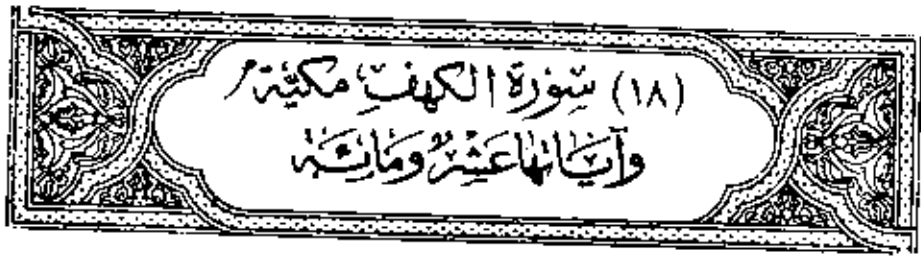 (١٨) سُورَة الكهفِ مكيّة
وآيَاتهَا عَشرٌ وَمَائَة